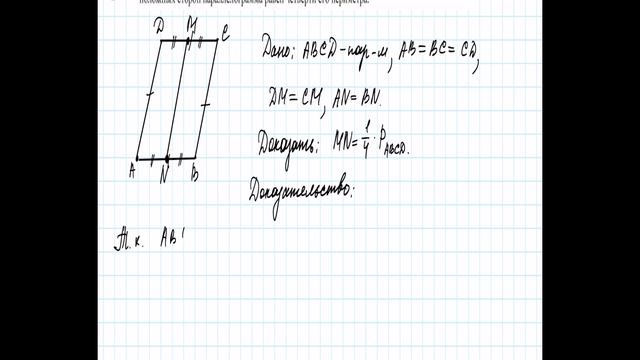 половины сторон параллелограмма равен четверти его периметра.
D M C
Дано: ABCD-пар-м, AB=BC=CD,
DM=CM, AN=BN.
Доказать: MN=1/4·P_ABCD.
A N B
Доказательство:
Т.к. AB